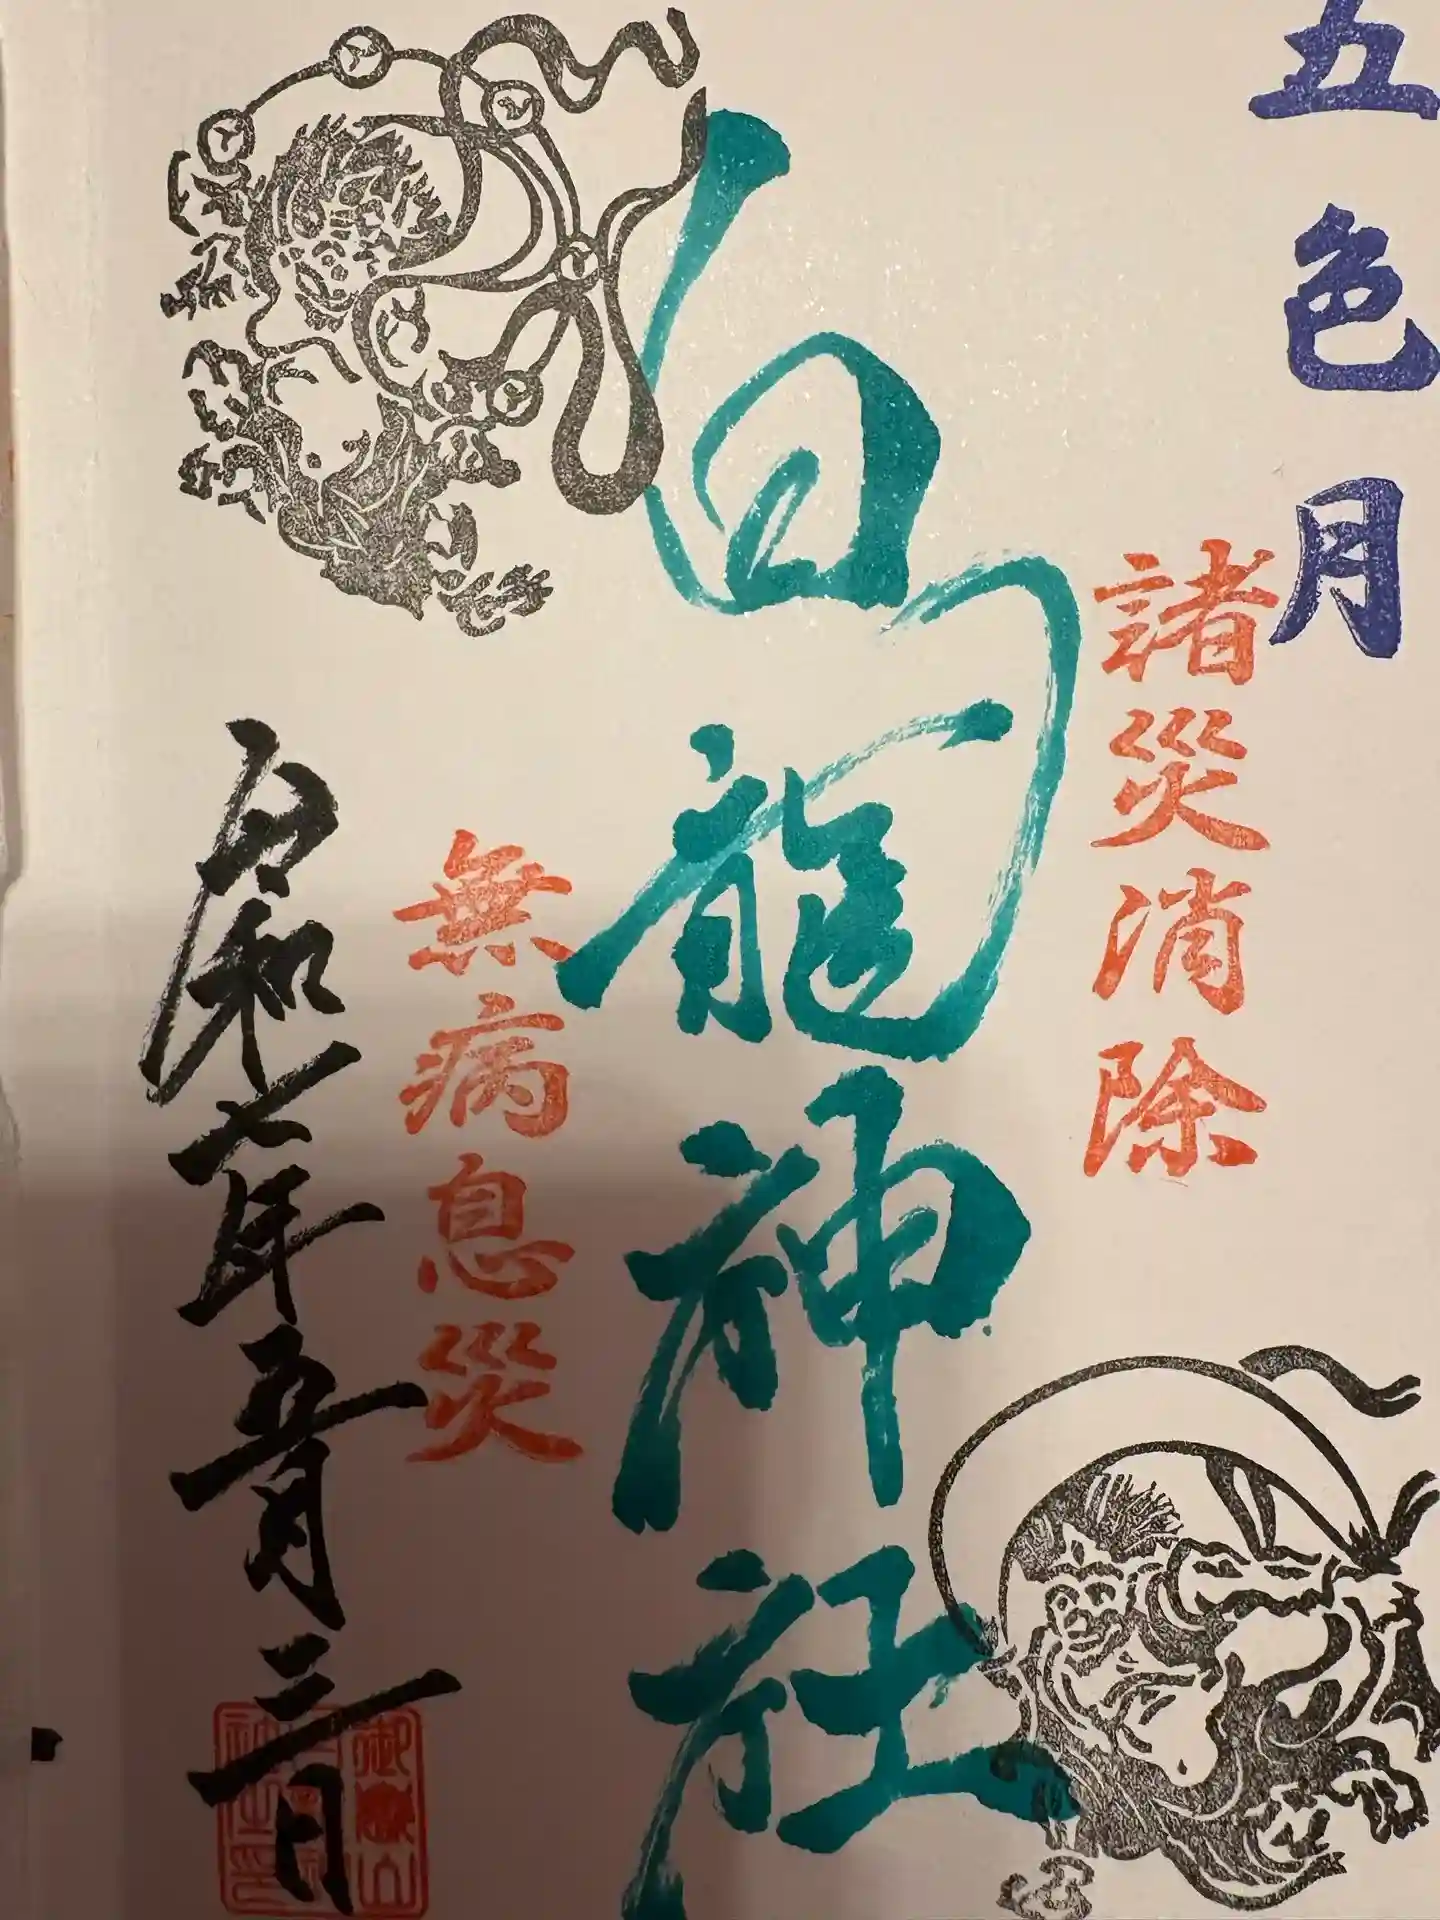 五色月
諸災消除
白龍神社
無病息災
令和七年五月三日